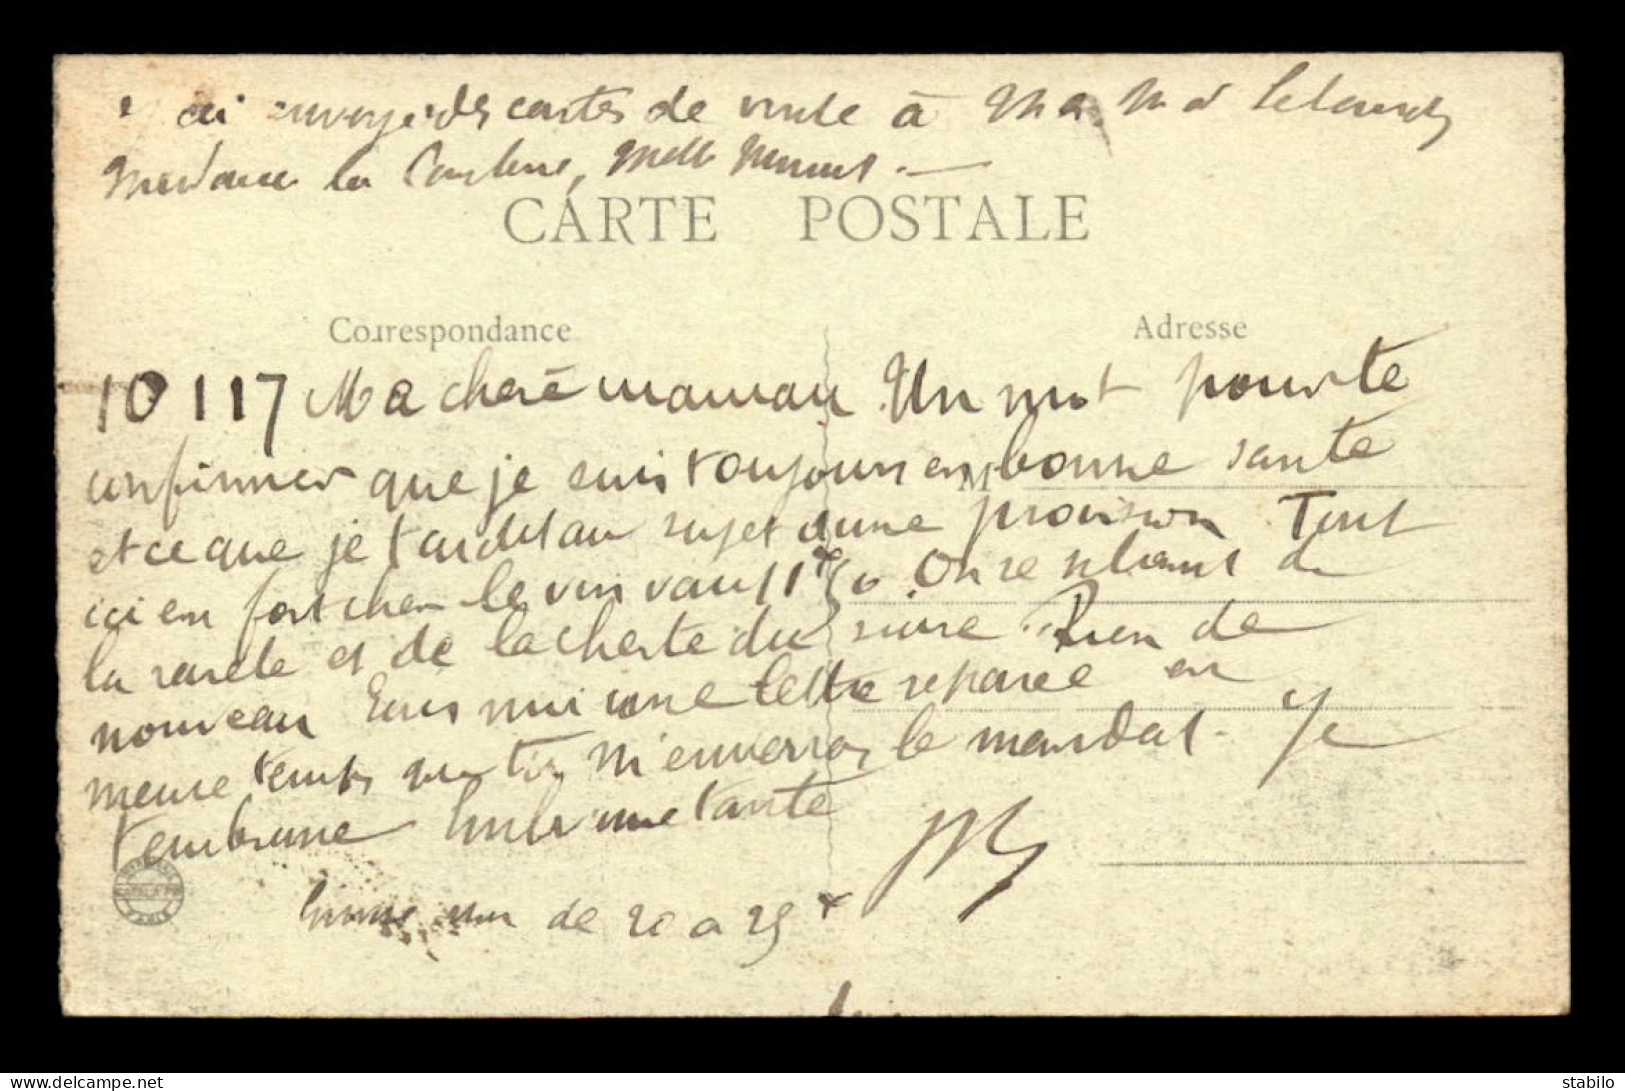 ai envoyé des cartes de visite à M a. M d
Madame la Melle
CARTE POSTALE
Correspondance
Adresse
10 1 17 Ma chere maman Un mot pour te
confirmer que je suis toujours en bonne sante
et ce que je t'ai dit au sujet d'une provision Tout
ici est fort cher le vin vaut 1f50. On se du
la rarete et de la cherte du sucre. Rien de
nouveau Ecris moi une lettre separee en
meme temps que tu m'enverras le mandat. Je
t'embrasse tante
moi de 20 a 25 f
delcampe.net
stabilo